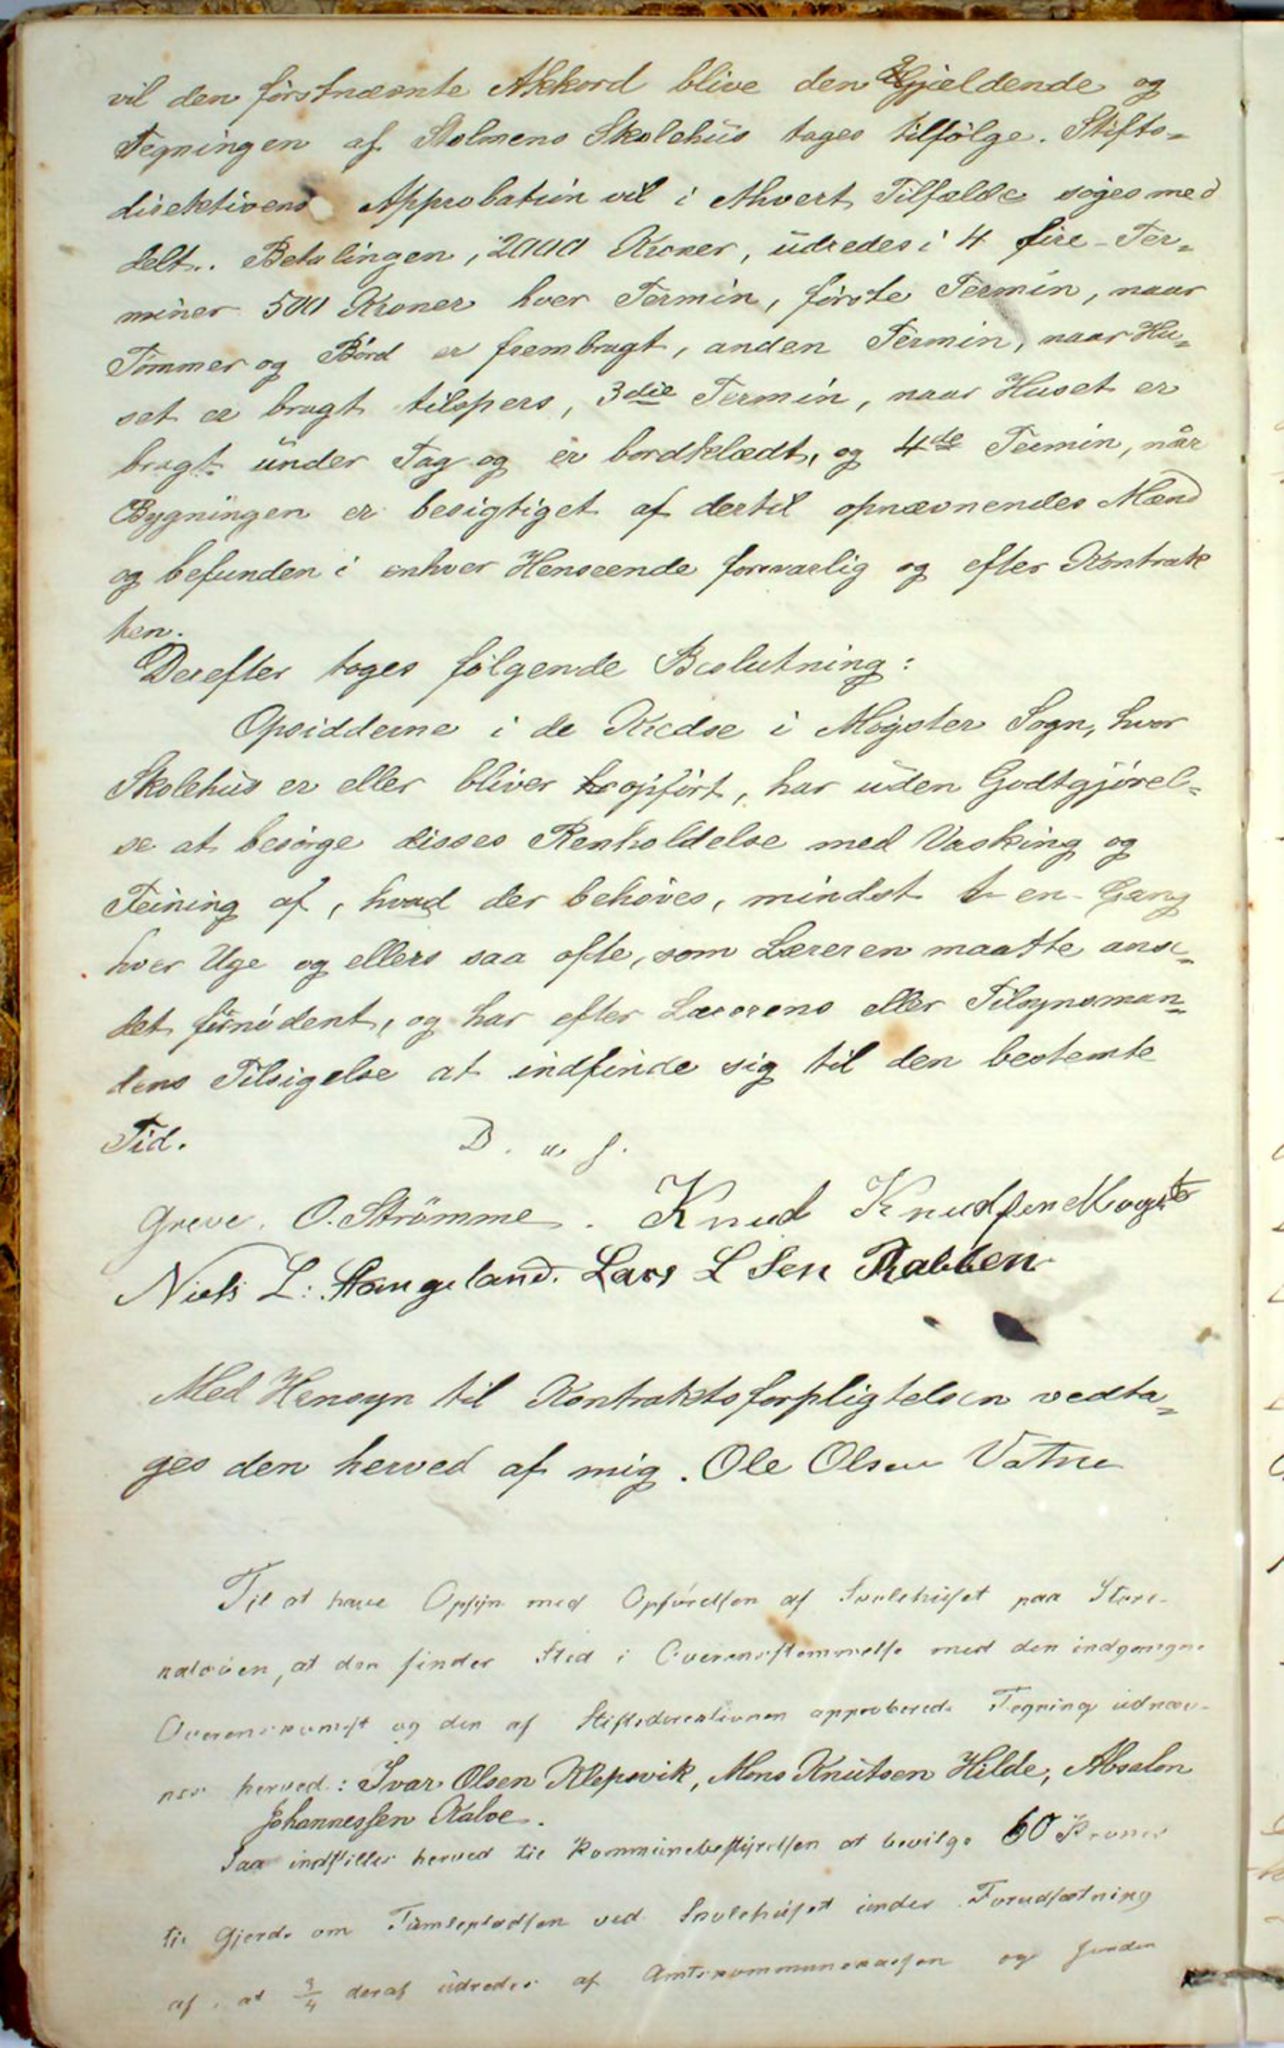 vil den förstnævnte Akkord blive den Gjældende og
Tegningen af Stolmens Skolehus tages tilfölge. Stifts-
direktivens Approbation vil i ethvert Tilfælde söges med
delt. Betalingen, 2000 Kroner, udredes i 4 fire Ter-
miner 500 Kroner hver Termin, förste Termin, naar
Tömmer og Börd er frembragt, anden Termin, naar Hu-
set er bragt tilspers, 3die Termin, naar Huset er
bragt under Tag og er bordklædt, og 4de Termin, når
Bygningen er besigtiget af dertil opnævnendes Mænd
og befunden i enhver Henseende forsvarlig og efter Kontrakt
ten.
Derefter toges fölgende Beslutning:
Opsidderne i de Kredse i Mögster Sogn, hvor
Skolehus er eller bliver opfört, har uden Godtgjörel-
se at besörge disses Renholdelse med Vasking og
Feining af, hvad der behöves, mindst en Gang
hver Uge og ellers saa ofte, som Læreren maatte anse
det fornödent, og har efter Lærerens eller Tilsynsman-
dens Tilsigelse at indfinde sig til den bestemte
Tid. D. u. s.
Greve. O. Strömme. Knud Knudsen Mögster
Niels L: Stangeland. Lars L Sen Rabben
Med Hensyn til Kontraktsforpligtelsen vedta-
ges den herved af mig. Ole Olsen Vatne
Til at have Opsyn med Opförelsen af Skolehuset paa Store-
kalsöen, at den finder Sted i Overensstemmelse med den indgangne
Overenskomst og den af Stiftsdirektionen approberede Tegning udnæv-
nes herved: Ivar Olsen Klepsvik, Mons Knutsen Hilde, Absalon
Johannessen Kalve.
Saa indstilles herved til Kommunebestyrelsen at bevilge 60 Kroner
til Gjerde om Tumlepladsen ved Skolehuset under Forudsætning
af, at 3/4 deraf udredes af Amtskommunekassen og